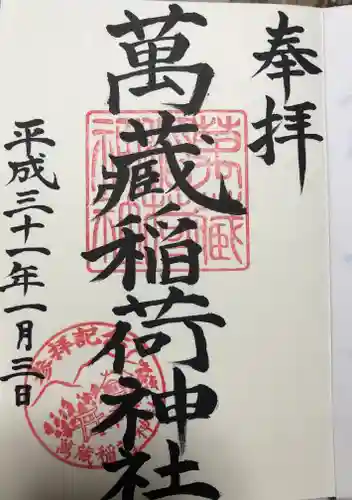 奉拝
萬藏稲荷神社
平成三十一年一月三日
参拝記念
萬蔵稲荷神社